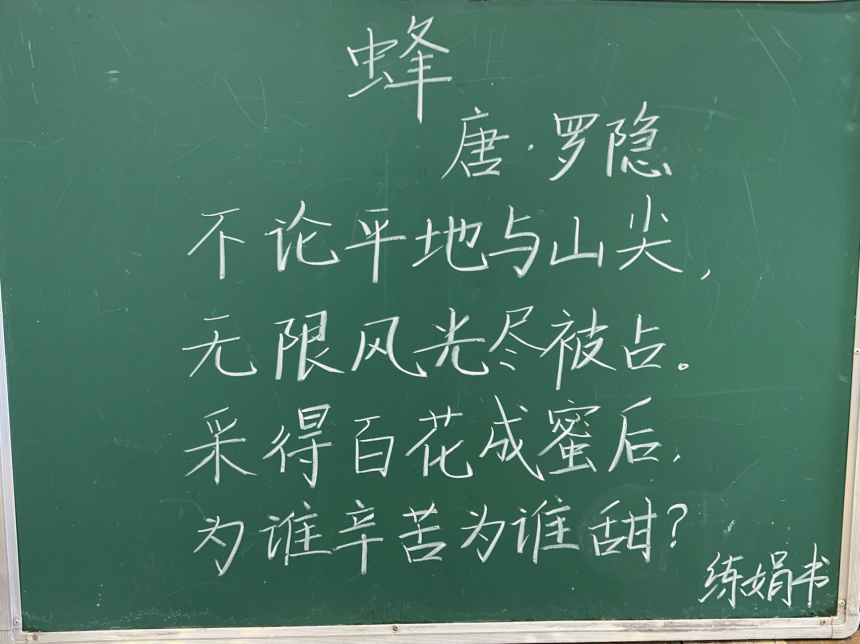 蜂
唐·罗隐
不论平地与山尖，
无限风光尽被占。
采得百花成蜜后，
为谁辛苦为谁甜？
练娟书